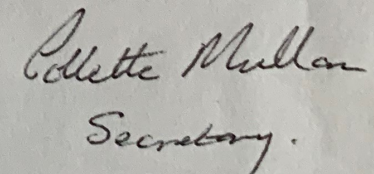 Collette Mullan
Secretary.